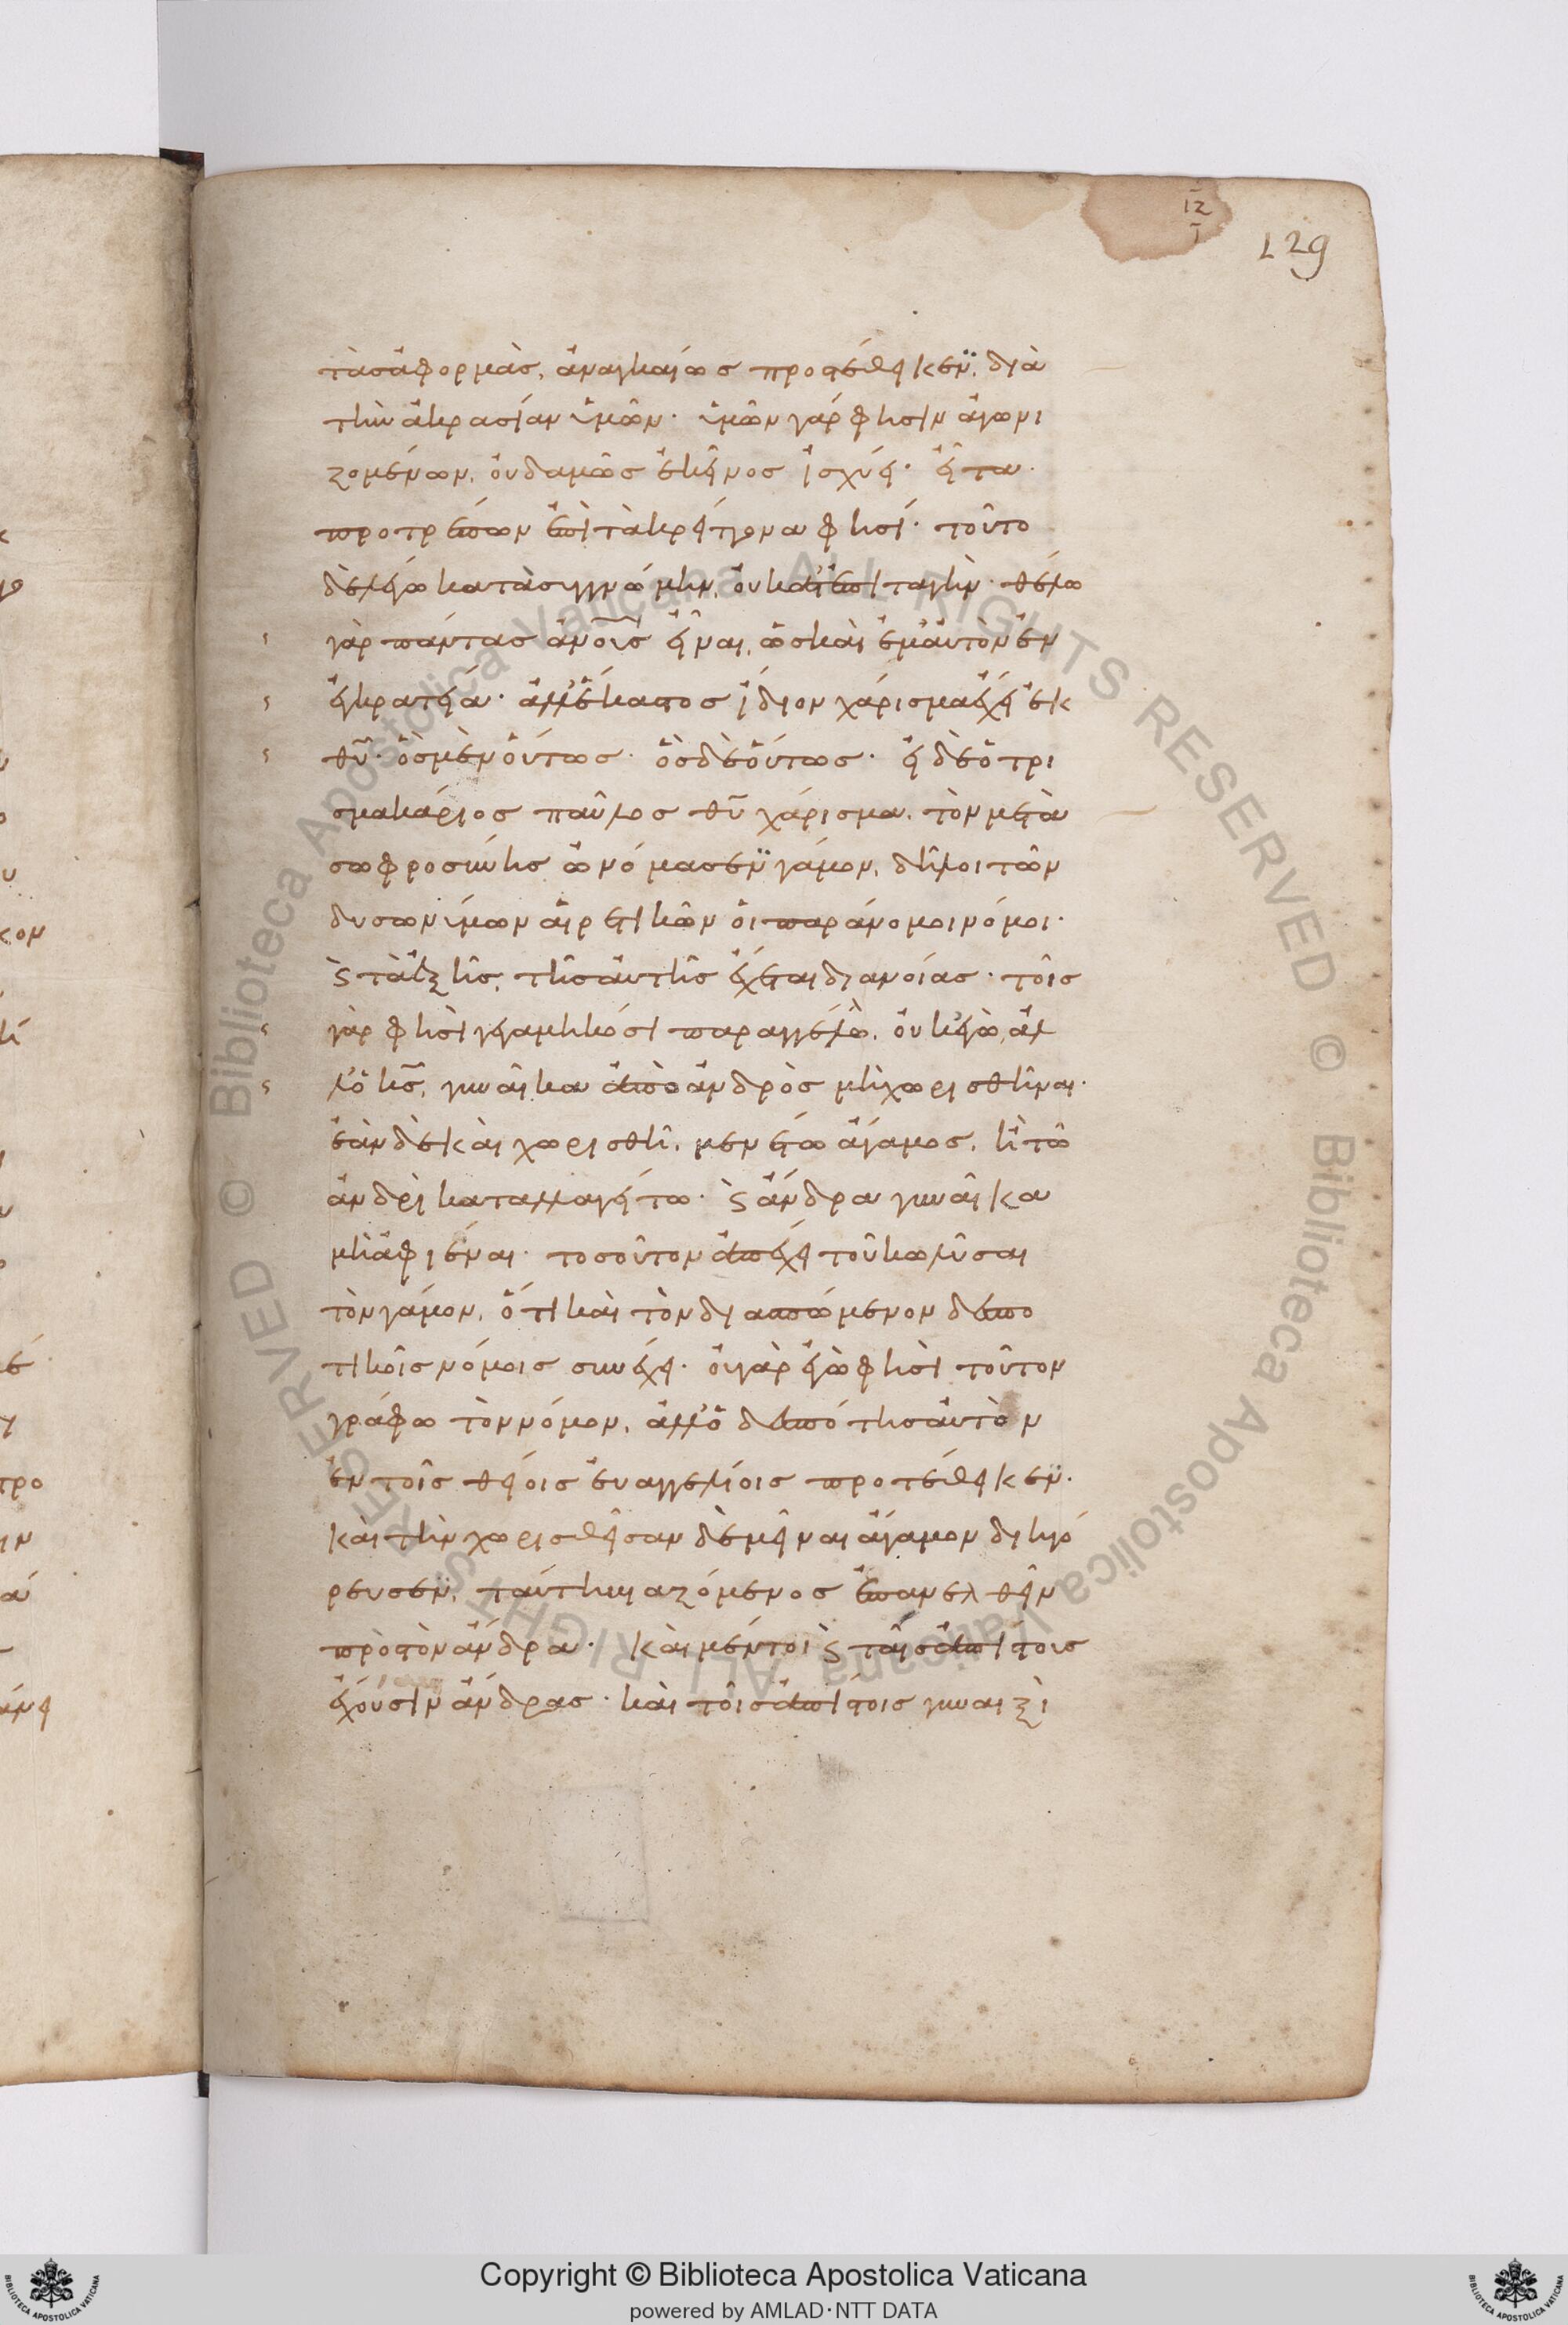 ΙΖ
Ι
129
τὰς ἀφορμὰς, ἀναγκαίως προστέθεικεν, διὰ
τὴν ἀκρασίαν ὑμῶν· ὑμῶν γάρ φησιν ἀγωνι
ζομένων, οὐδαμῶς ἐκεῖνος ἰσχύει· εἶτα
προτρέπων ἐπὶ τὰ κρείττονα φησί· τοῦτο
δὲ λέγω κατὰ συγγνώμην, οὐ κατ' ἐπιταγήν· θέλω
γὰρ πάντας ἀνοῦς εἶναι, ὡς καὶ ἐμαυτὸν ἐν
ἐγκρατεία· ἀλλ' ἕκαστος ἴδιον χάρισμα ἔχει ἐκ
θυ· ὃς μὲν οὕτως· ὃς δὲ οὕτως· εἰ δὲ ὁ τρι
σμακάριος παῦλος θυ χάρισμα, τὸν μετὰ
σωφροσύνης ὠνόμασεν γάμον, δῆλοι τῶν
δυσωνύμων αἱρετικῶν οἱ παράνομοι νόμοι·
ϛ τὰ ἑξῆς, τῆς αὐτῆς ἔχεται διανοίας· τοῖς
γάρ φησὶ γεγαμηκόσι παραγγέλλω, οὐκ ἐγὼ, ἀλ
λ' ὁ κς, γυναῖκα ἀπὸ ἀνδρὸς μὴ χωρισθῆναι·
ἐὰν δὲ καὶ χωρισθῆ, μενέτω ἄγαμος, ἢ τῶ
ἀνδρὶ καταλλαγήτω· ϛ ἄνδρα γυναῖκα
μὴ ἀφιέναι· τοσοῦτον ἀπέχει τοῦ κωλῦσαι
τὸν γάμον, ὅτι καὶ τὸν διασπώμενον δεσπο
τικοῖς νόμοις συνέχει· οὐ γὰρ ἐγὼ φησὶ τοῦτον
γράφω τὸν νόμον, ἀλλ' ὁ δεσπότης αὐτὸν
ἐν τοῖς θείοις εὐαγγελίοις προτέθεικεν·
καὶ τὴν χωρισθεῖσαν δὲ μεῖναι ἄγαμον διηγό
ρευσεν, ταύτη βιαζόμενος ἐπανελθεῖν
πρὸς τὸν ἄνδρα· καὶ μέντοι ϛ ταῖς ἀπίστοις
ἐχούσιν ἄνδρας· καὶ τοῖς ἀπίστοις γυναιξὶ
Copyright © Biblioteca Apostolica Vaticana
powered by AMLAD·NTT DATA